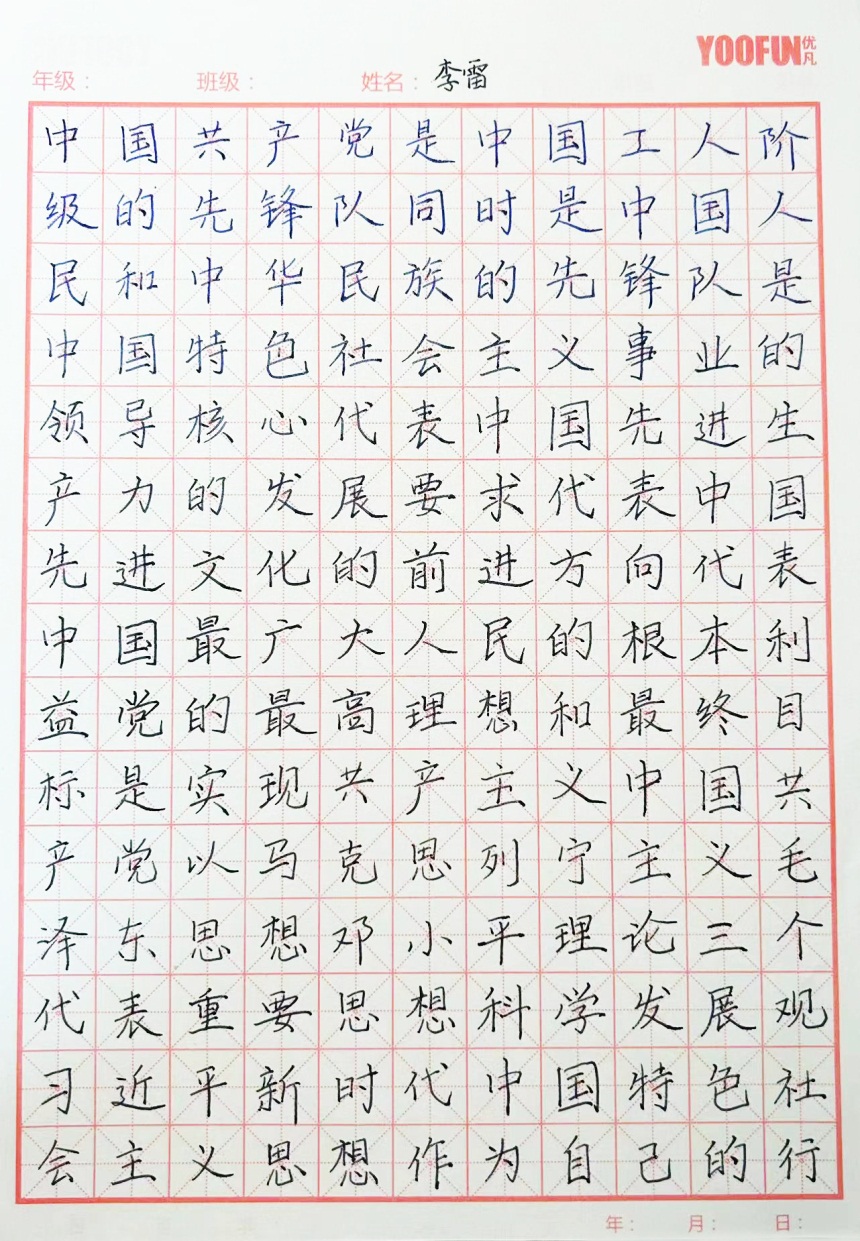 YOOFUN优凡
年级： 班级： 姓名：李雷
中国共产党是中国工人阶
级的先锋队同时是中国人
民和中华民族的先锋队是
中国特色社会主义事业的
领导核心代表中国先进生
产力的发展要求代表中国
先进文化的前进方向代表
中国最广大人民的根本利
益党的最高理想和最终目
标是实现共产主义中国共
产党以马克思列宁主义毛
泽东思想邓小平理论三个
代表重要思想科学发展观
习近平新时代中国特色社
会主义思想作为自己的行
年： 月： 日：